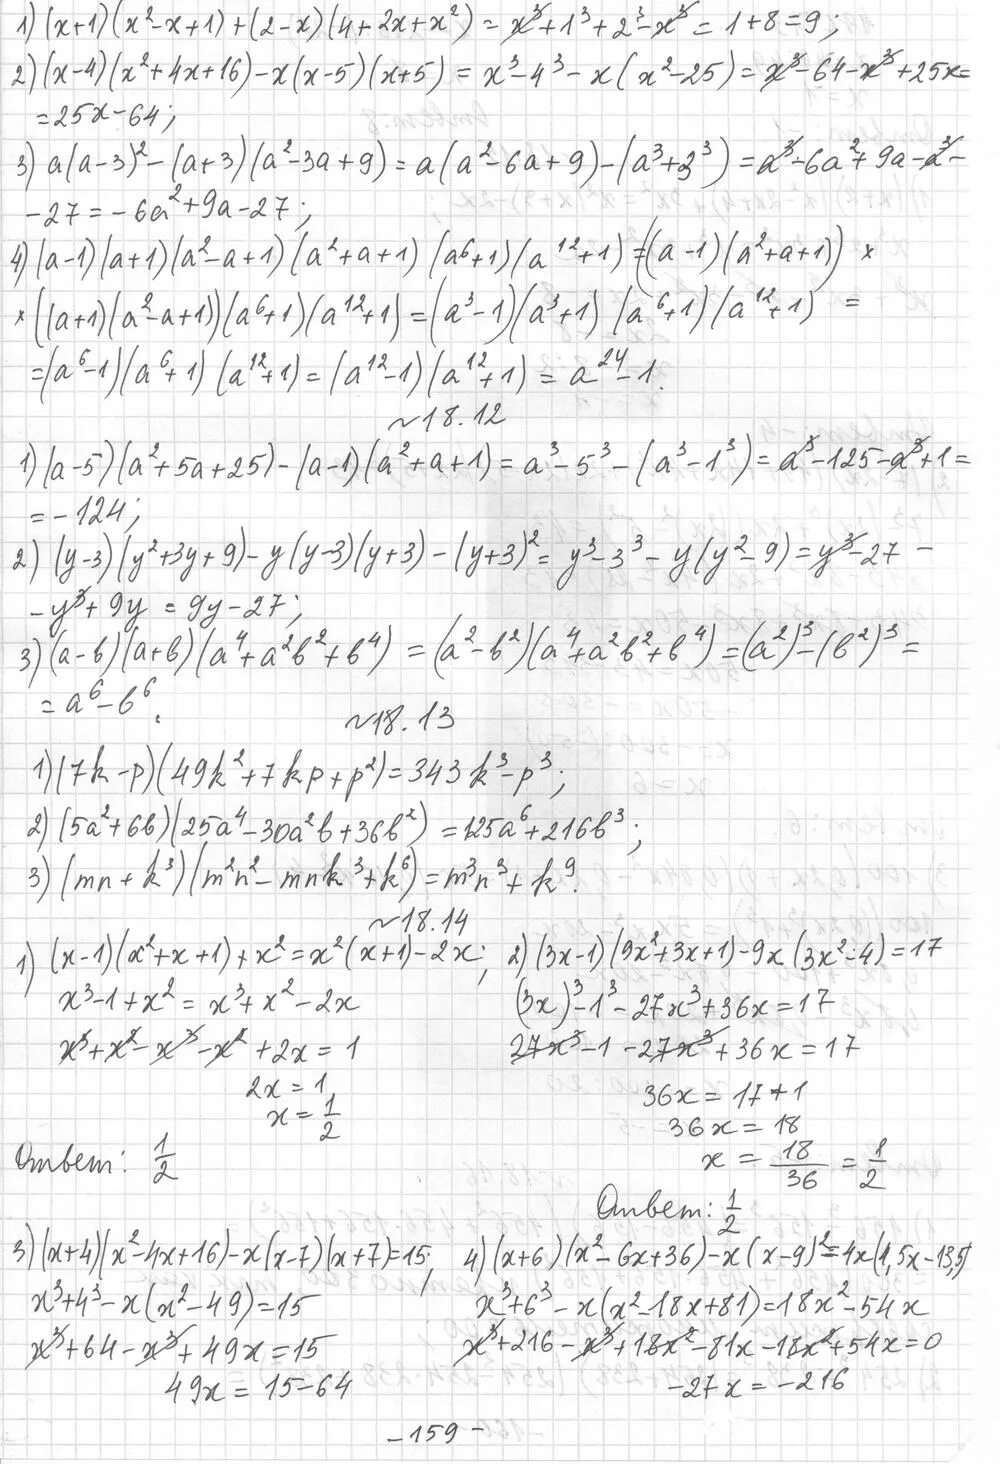 1) (x+1)(x²-x+1)+(2-x)(4+2x+x²) = x³+1³+2³-x³ = 1+8=9;
2) (x-4)(x²+4x+16)-x(x-5)(x+5) = x³-4³-x(x²-25) = x³-64-x³+25x=
=25x-64;
3) a(a-3)²-(a+3)(a²-3a+9)=a(a²-6a+9)-(a³+3³)=a³-6a²+9a-a³-
-27=-6a²+9a-27;
4) (a-1)(a+1)(a²-a+1)(a²+a+1)(a⁶+1)(a¹²+1)=((a-1)(a²+a+1)) ×
× ((a+1)(a²-a+1))(a⁶+1)(a¹²+1)=(a³-1)(a³+1)(a⁶+1)(a¹²+1) =
=(a⁶-1)(a⁶+1)(a¹²+1)=(a¹²-1)(a¹²+1) = a²⁴-1.
~18.12
1) (a-5)(a²+5a+25)-(a-1)(a²+a+1)=a³-5³-(a³-1³)=a³-125-a³+1=
=-124;
2) (y-3)(y²+3y+9)-y(y-3)(y+3)-(y+3)²=y³-3³-y(y²-9)=y³-27-
-y³+9y = 9y-27;
3) (a-b)(a+b)(a⁴+a²b²+b⁴) = (a²-b²)(a⁴+a²b²+b⁴)=(a²)³-(b²)³=
= a⁶-b⁶.
~18.13
1) (7k-p)(49k²+7kp+p²)=343k³-p³;
2) (5a²+6b)(25a⁴-30a²b+36b²)=125a⁶+216b³;
3) (mn+k³)(m²n²-mnk³+k⁶)=m³n³+k⁹.
~18.14
1) (x-1)(x²+x+1)+x²=x²(x+1)-2x;
x³-1+x² = x³+x²-2x
x³+x²-x³-x²+2x=1
2x=1
x=1/2
Ответ: 1/2
2) (3x-1)(9x²+3x+1)-9x(3x²-4)=17
(3x)³-1³-27x³+36x=17
27x³-1-27x³+36x=17
36x=17+1
36x=18
x=18/36=1/2
Ответ: 1/2
3) (x+4)(x²-4x+16)-x(x-7)(x+7)=15;
x³+4³-x(x²-49)=15
x³+64-x³+49x=15
49x=15-64
4) (x+6)(x²-6x+36)-x(x-9)²=4x(4,5x-13,5)
x³+6³-x(x²-18x+81)=18x²-54x
x³+216-x³+18x²-81x-18x²+54x=0
-27x=-216
-159-